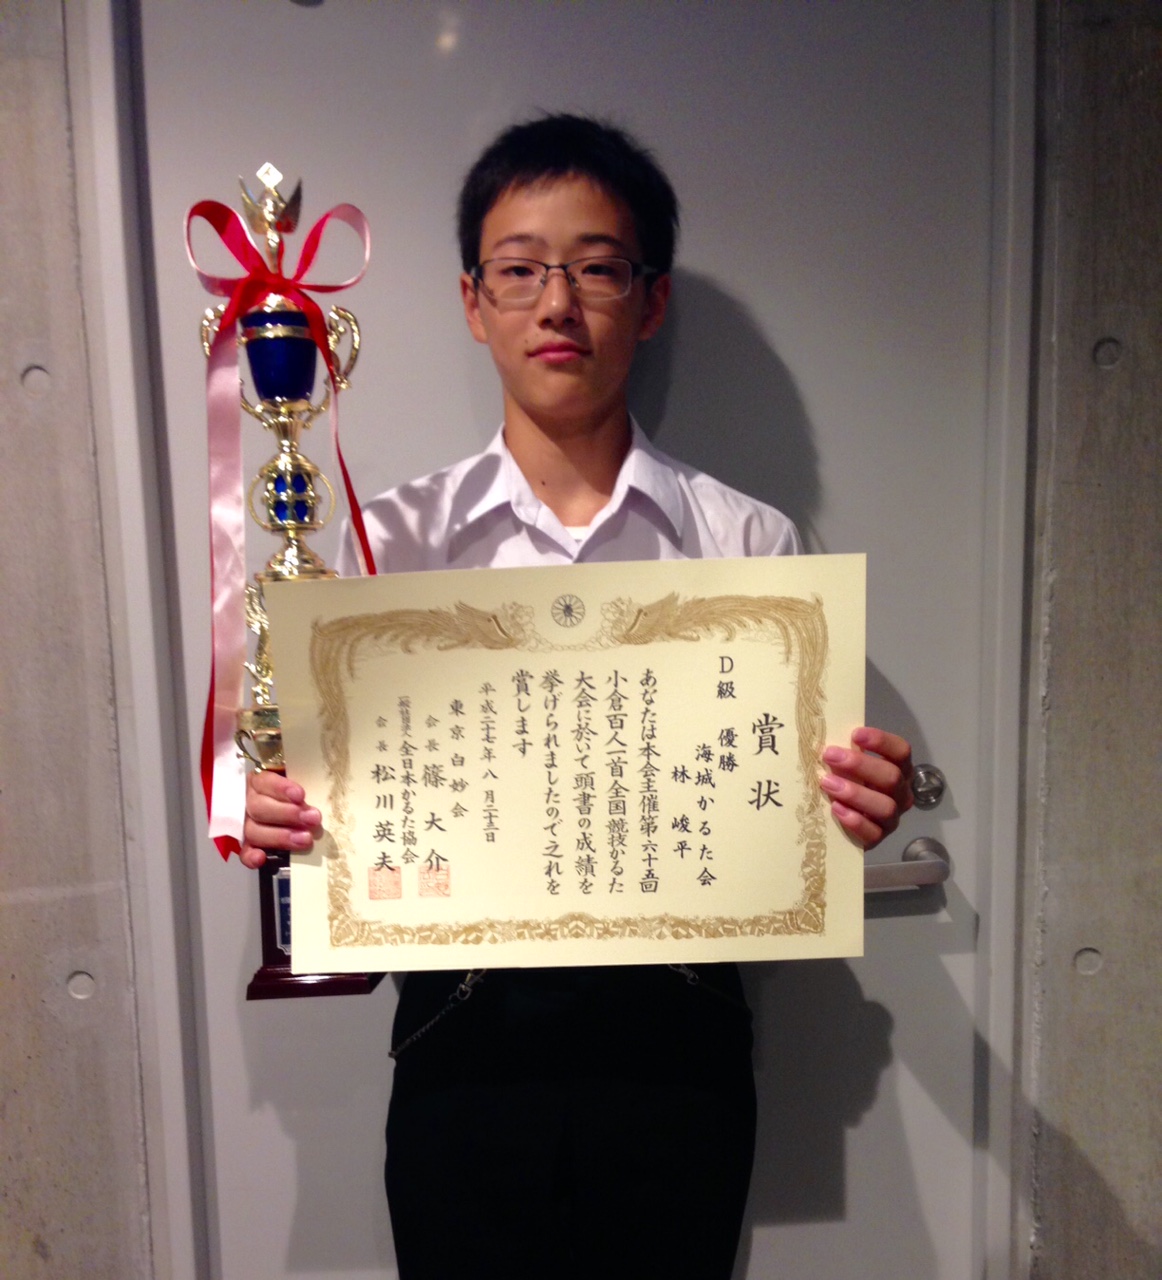 賞状
D級 優勝
海城かるた会
林 峻平
あなたは本会主催第六十五回
小倉百人一首全国競技かるた
大会に於いて頭書の成績を
挙げられましたので之れを
賞します
平成二十七年 八月二十三日
東京白妙会
会長 篠 大介
一般社団法人 全日本かるた協会
会長 松川英夫